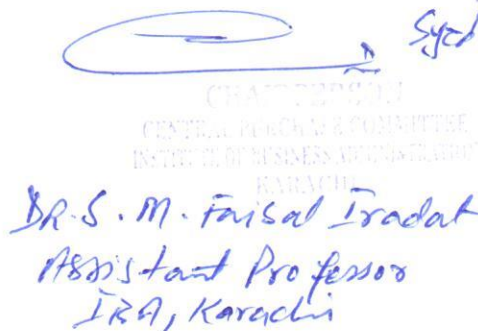 Syed
CHAIRPERSON
CENTRAL PURCHASE COMMITTEE
INSTITUTE OF BUSINESS ADMINISTRATION
KARACHI
DR. S. M. Faisal Iradat
Assistant Professor
IBA, Karachi